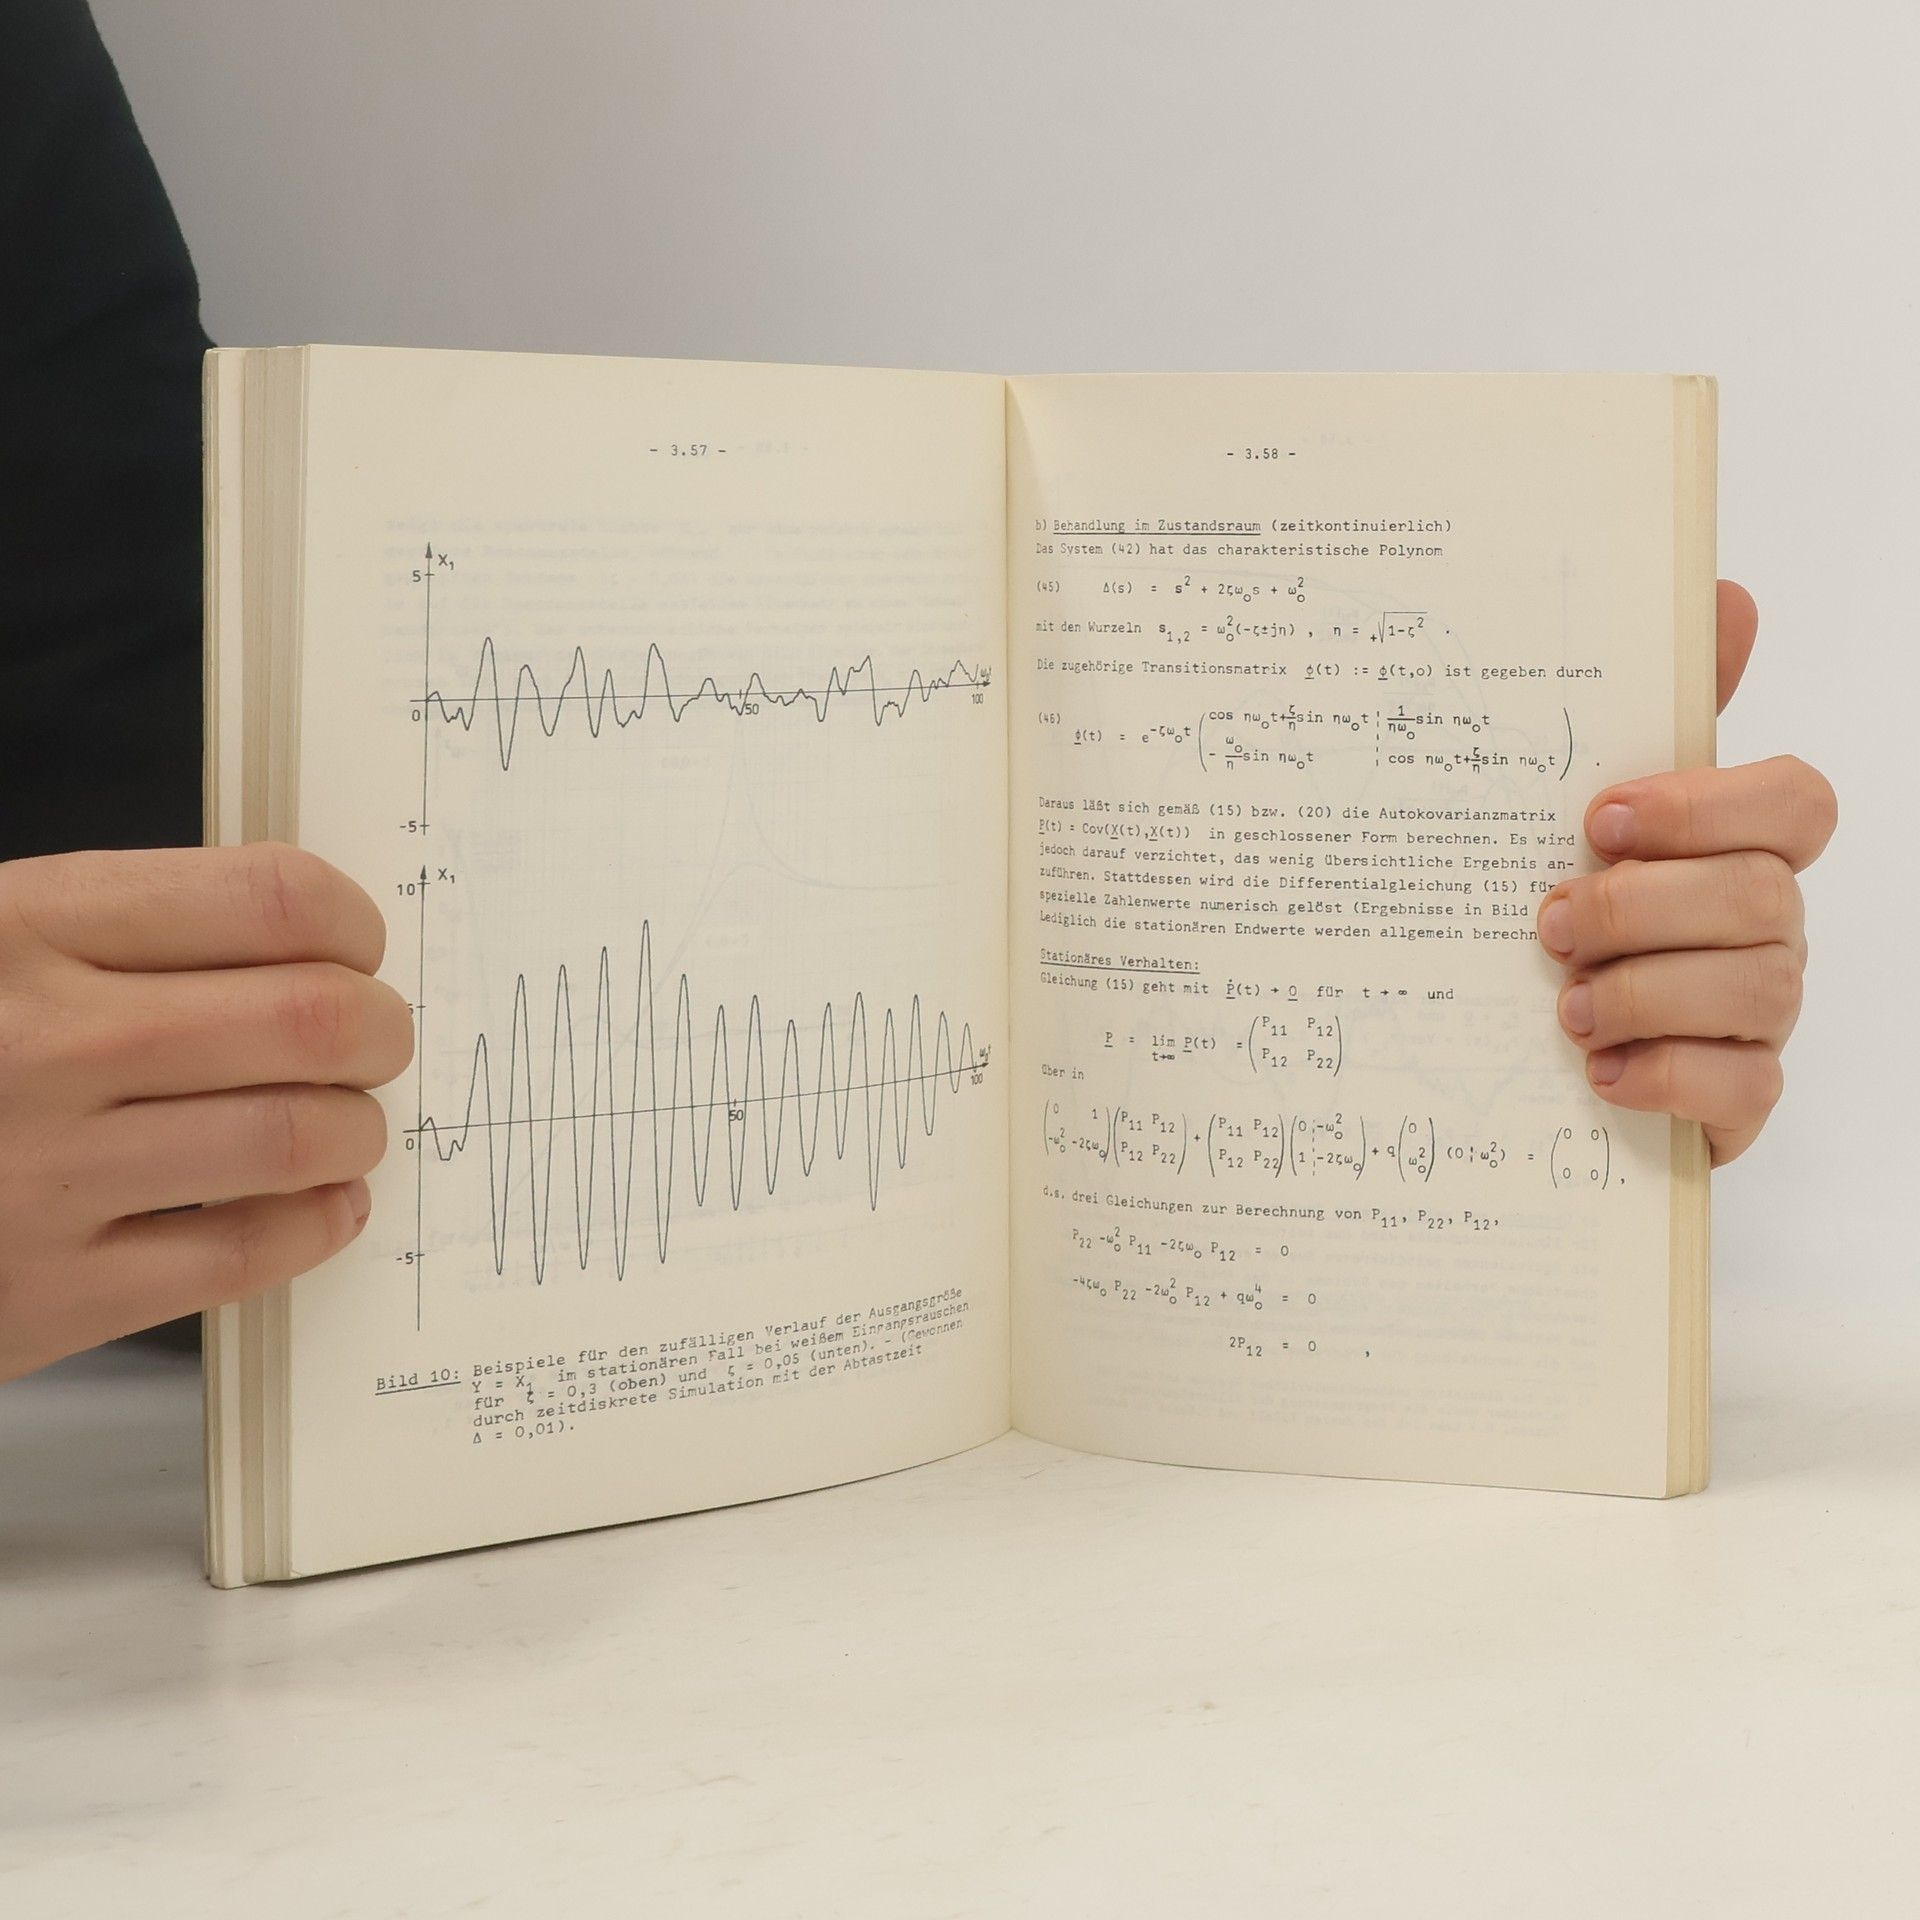 - 3.57 -
X₁
5
0
50
ω₀t
100
-5
X₁
10
5
0
50
ω₀t
100
-5
Bild 10: Beispiele für den zufälligen Verlauf der Ausgangsgröße
Y = X₁ im stationären Fall bei weißem Eingangsrauschen
für ζ = 0,3 (oben) und ζ = 0,05 (unten). - (Gewonnen
durch zeitdiskrete Simulation mit der Abtastzeit
Δ = 0,01).
- 3.58 -
b) Behandlung im Zustandsraum (zeitkontinuierlich)
Das System (42) hat das charakteristische Polynom
(45) Δ(s) = s² + 2ζω₀s + ω₀²
mit den Wurzeln s₁,₂ = ω₀²(-ζ±jη) , η = +√1-ζ² .
Die zugehörige Transitionsmatrix ϕ(t) := ϕ(t,o) ist gegeben durch
(46) ϕ(t) = e^-ζω₀t ( cos ηω₀t+ζ/η sin ηω₀t ¦ 1/ηω₀ sin ηω₀t
- ω₀/η sin ηω₀t ¦ cos ηω₀t+ζ/η sin ηω₀t ) .
Daraus läßt sich gemäß (15) bzw. (20) die Autokovarianzmatrix
P(t) = Cov(X(t),X(t)) in geschlossener Form berechnen. Es wird
jedoch darauf verzichtet, das wenig übersichtliche Ergebnis an-
zuführen. Stattdessen wird die Differentialgleichung (15) für
spezielle Zahlenwerte numerisch gelöst (Ergebnisse in Bild
Lediglich die stationären Endwerte werden allgemein berechn
Stationäres Verhalten:
Gleichung (15) geht mit Ṗ(t) → 0 für t → ∞ und
P = lim P(t) = ( P₁₁ P₁₂
t→∞ P₁₂ P₂₂ )
über in
( 0 1 ) ( P₁₁ P₁₂ ) + ( P₁₁ P₁₂ ) ( 0 ¦ -ω₀² ) + q ( 0 ) (0 ¦ ω₀²) = ( 0 0 )
( -ω₀² -2ζω₀ ) ( P₁₂ P₂₂ ) ( P₁₂ P₂₂ ) ( 1 ¦ -2ζω₀ ) ( ω₀² ) ( 0 0 ) ,
d.s. drei Gleichungen zur Berechnung von P₁₁, P₂₂, P₁₂,
P₂₂ -ω₀² P₁₁ -2ζω₀ P₁₂ = 0
-4ζω₀ P₂₂ -2ω₀² P₁₂ + qω₀⁴ = 0
2P₁₂ = 0 ,